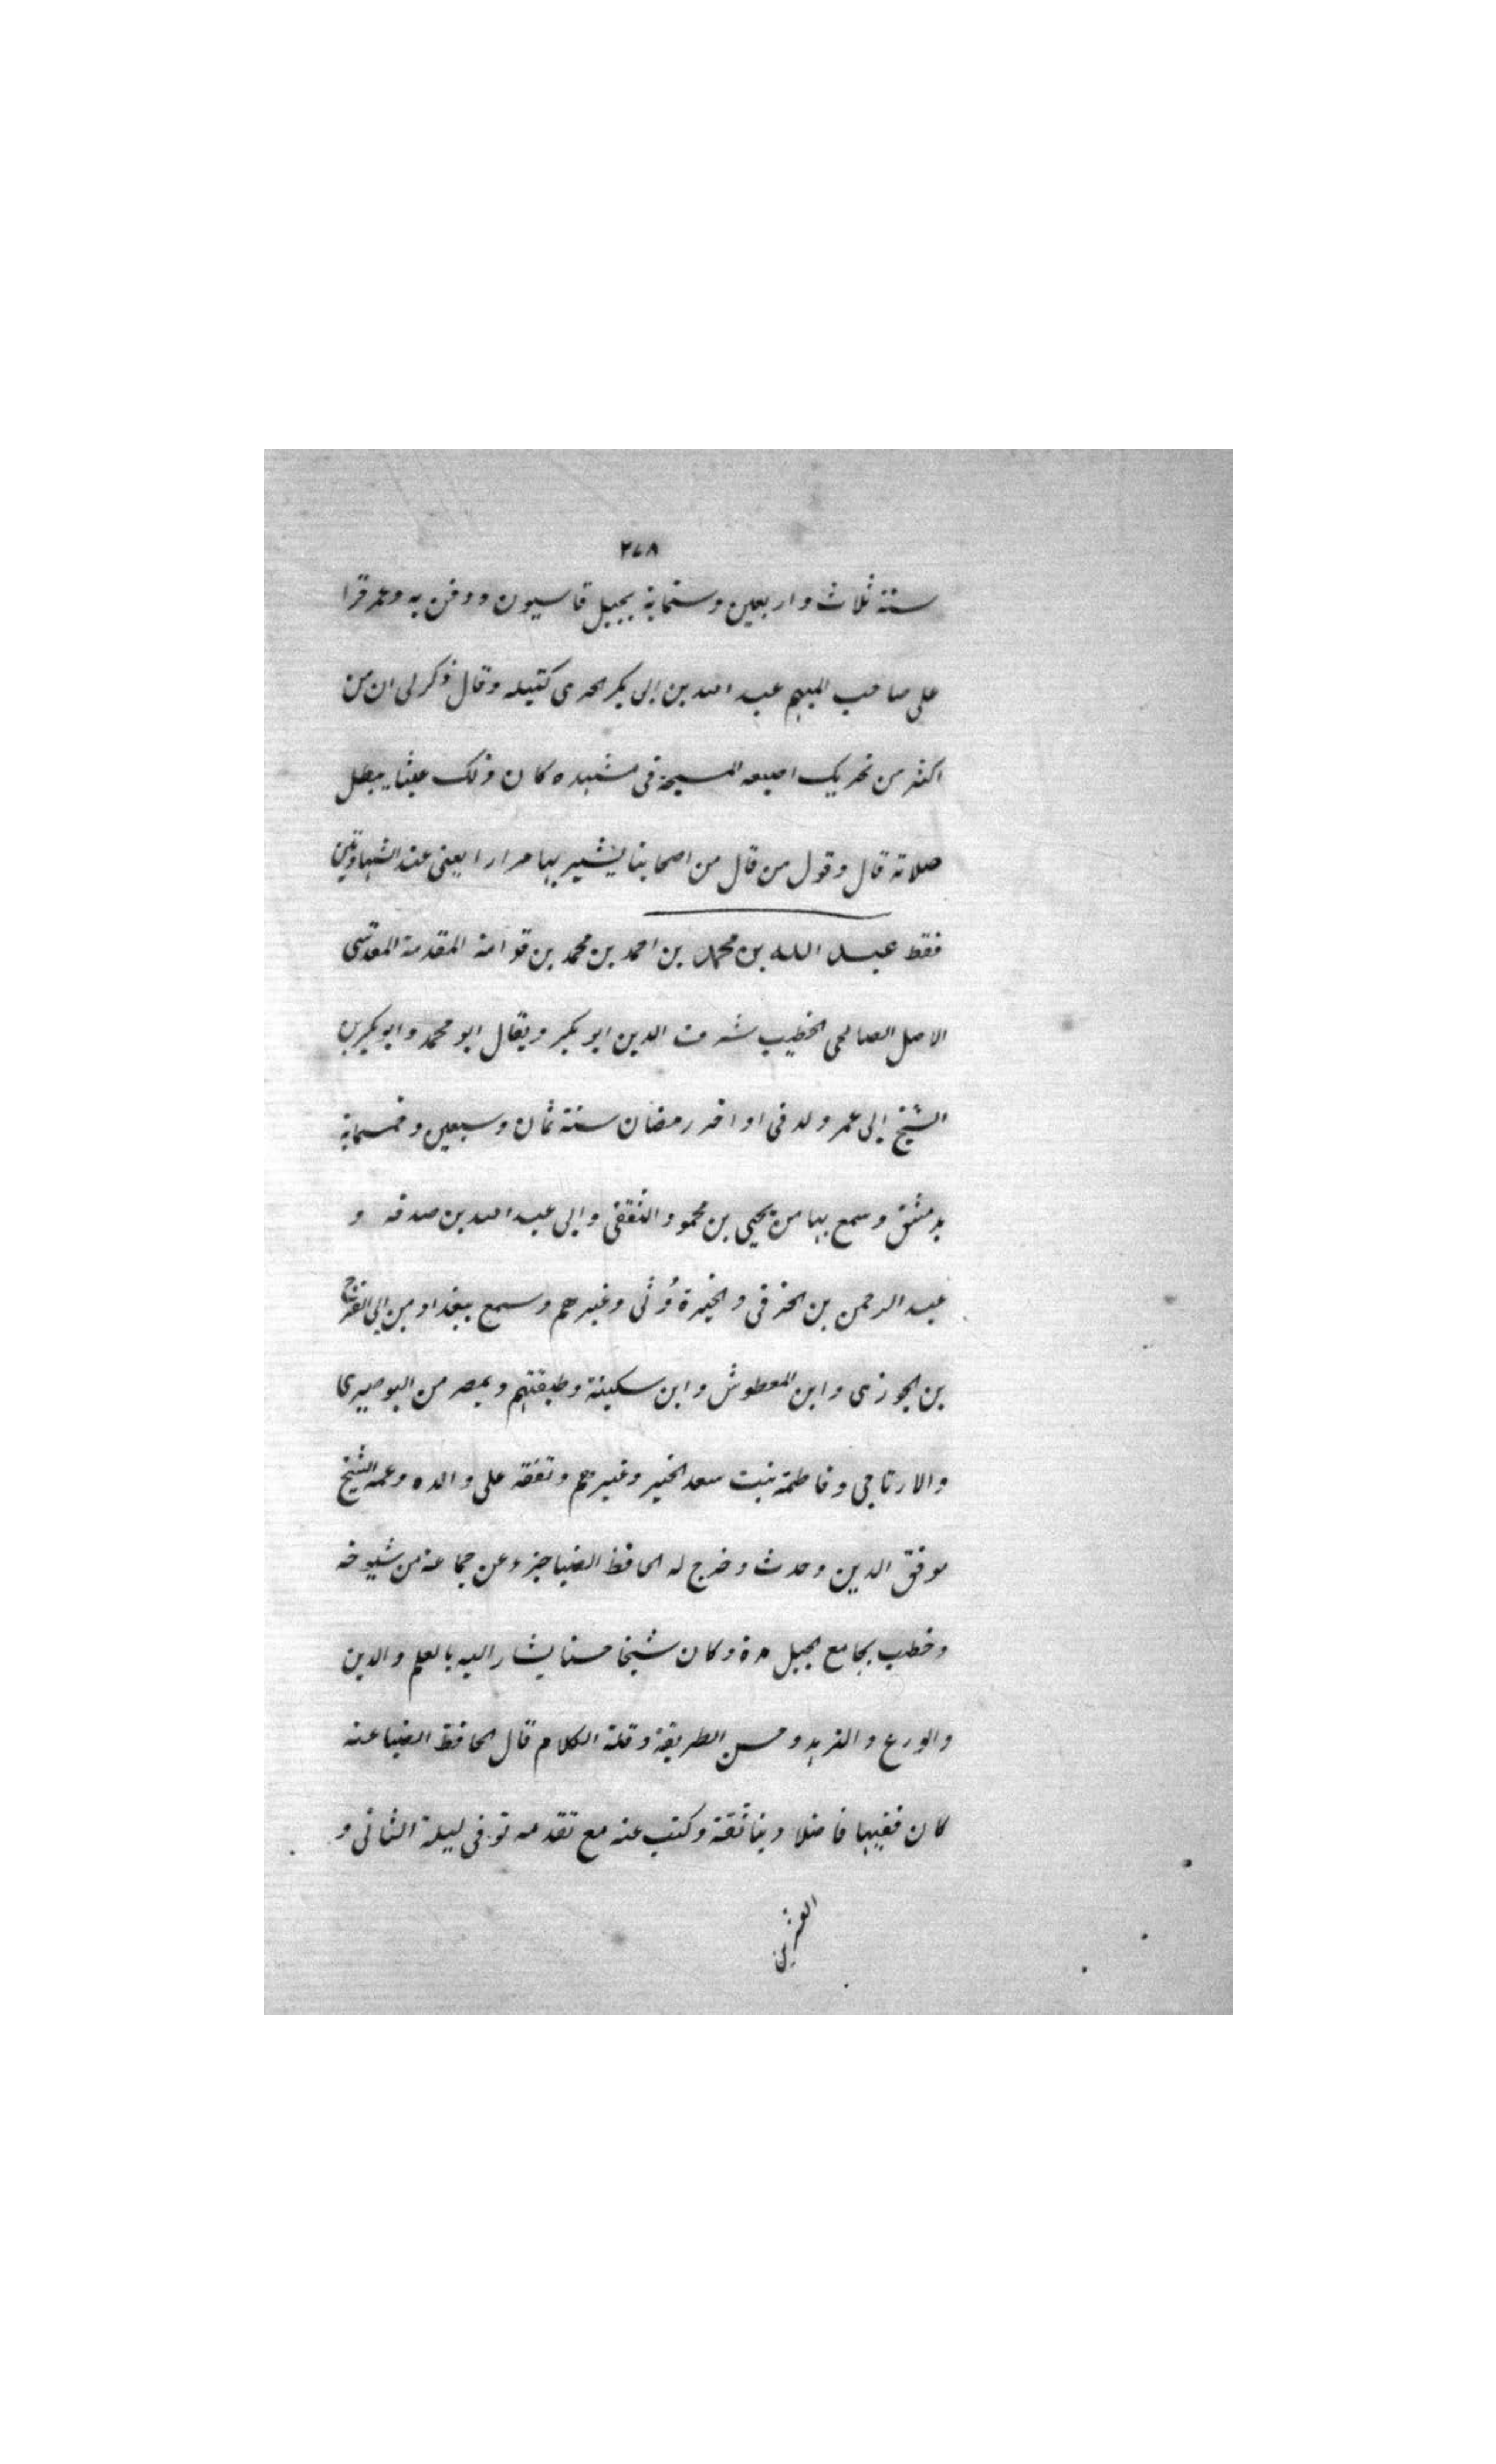 ٢٧٨
سنة ثلاث واربعين وستماية بجبل قاسيون ودفن به وعمر قرا
على صاحب المبهم عبد الله بن ابى بكر الحربى كتيله وقال ذكر لى ان من
اكثر من تحريك اصبعه المسبحة فى تشهده كان ذلك عبثا يبطل
صلاته قال وقول من قال من اصحابنا يشير بها مرارا يعنى عند الشهادتين
فقط عبد الله بن محمد بن احمد بن محمد بن قوامة المقدمة المقدسى
الاصل الصالحى الخطيب شرف الدين ابو بكر ويقال ابو محمد وابو بكر بن
الشيخ ابى عمر ولد فى اواخر رمضان سنة ثمان وسبعين وخمسماية
بدمشق وسمع بها من يحيى بن محمود الثقفى وابى عبد الله بن صدقه و
عبد الرحمن بن الخرقى والجنزوى وغيرهم وسمع ببغداد من ابى الفرج
بن الجوزى وابن المعطوش وابن سكينة وطبقتهم وبمصر من البوصيرى
والارتاجى وفاطمة بنت سعد الخير وغيرهم وتفقه على والده وعمه الشيخ
موفق الدين وحدث وخرج له الحافظ الضيا جزء عن جماعة من شيوخه
وخطب بجامع الجبل مدة وكان شيخا حسنا يشار اليه بالعلم والدين
والورع والزهد وحسن الطريقة وقلة الكلام قال الحافظ الضيا عنه
كان فقيها فاضلا دينا ثقة وكتب عنه مع تقدمه توفى ليلة الثانى و
العشرين